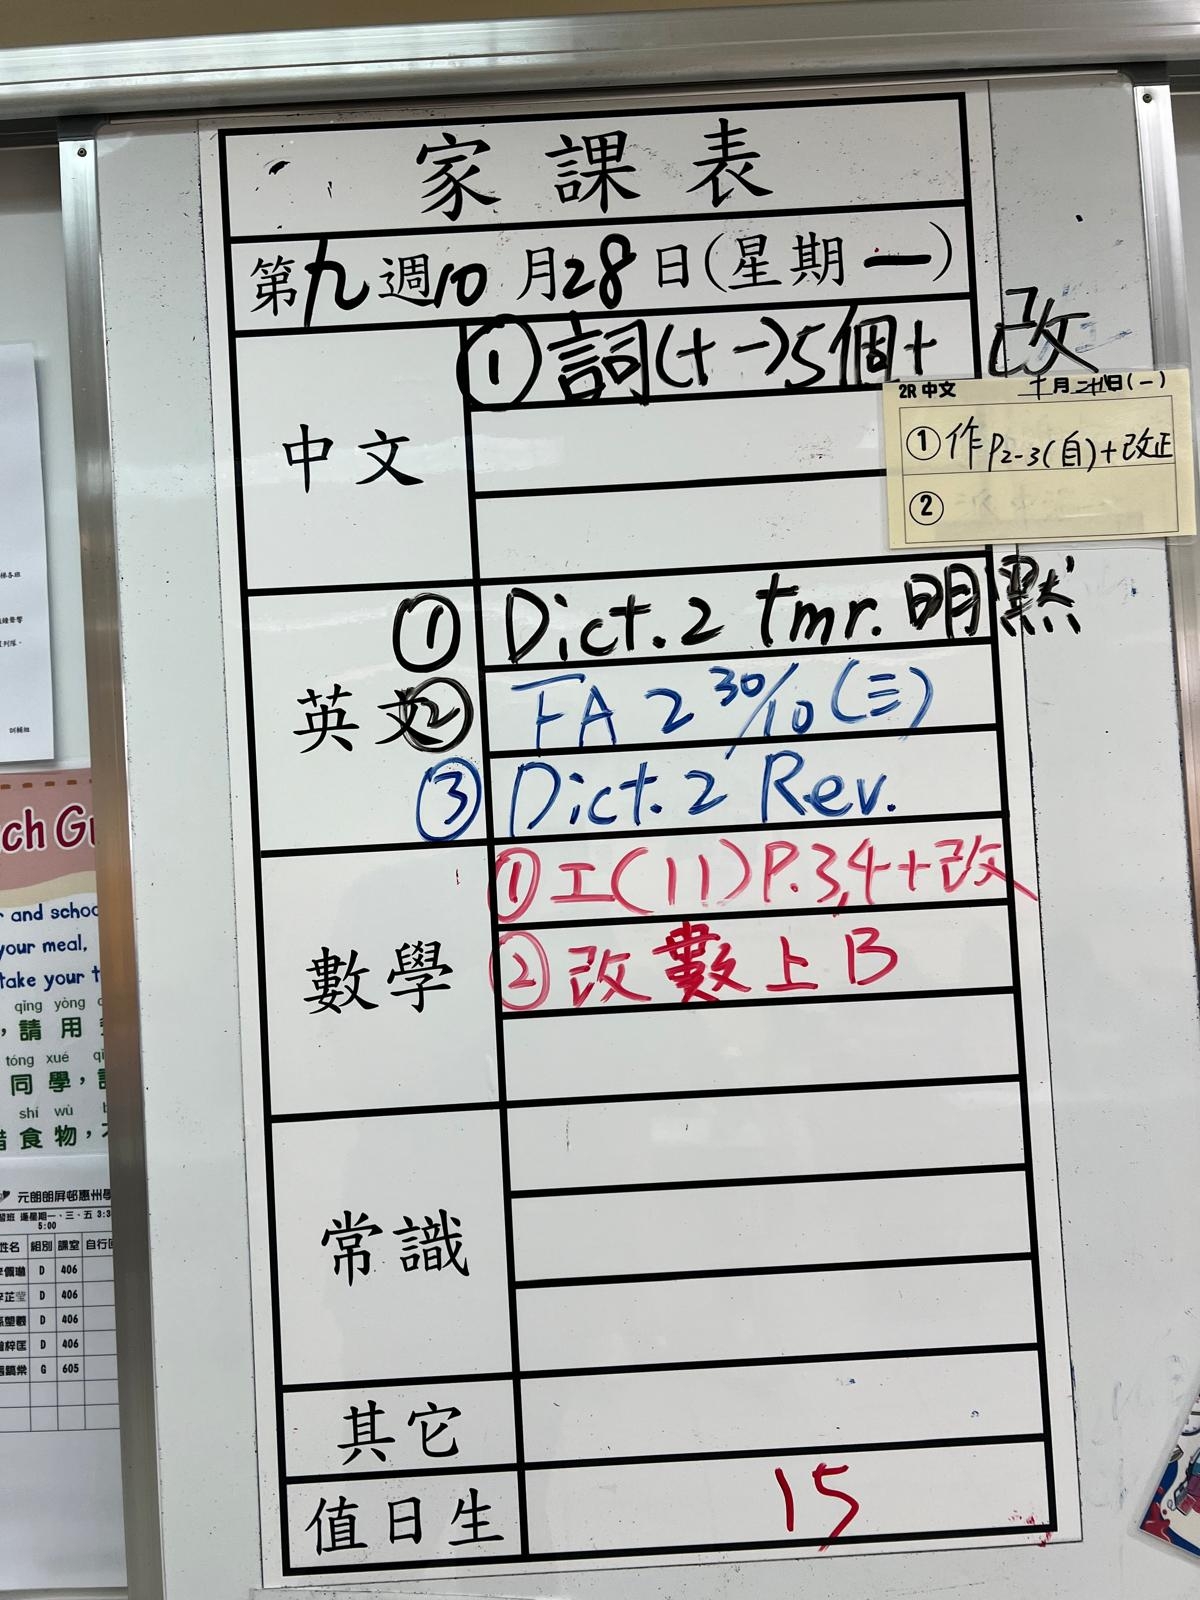 家課表
第九週10月28日(星期一)
中文
①詞(十一)5個+改
2R中文 十月二十八日(一)
①作P2-3(自)+改正
②
英文
① Dict.2 tmr. 明默
② FA 2 30/10 (三)
③ Dict.2 Rev.
數學
①工(11)P.3,4+改
②改數上B
常識
其它
值日生
15
訓輔組
ch Gr
r and schoo
your meal,
take your t
qǐng yòng
，請用
tóng xué
同學，
shí wù
食物，
元朗朗屏邨惠州學
逢星期一、三、五 3:3
5:00
姓名 組別 課室 自行回
D 406
D 406
D 406
D 406
G 605